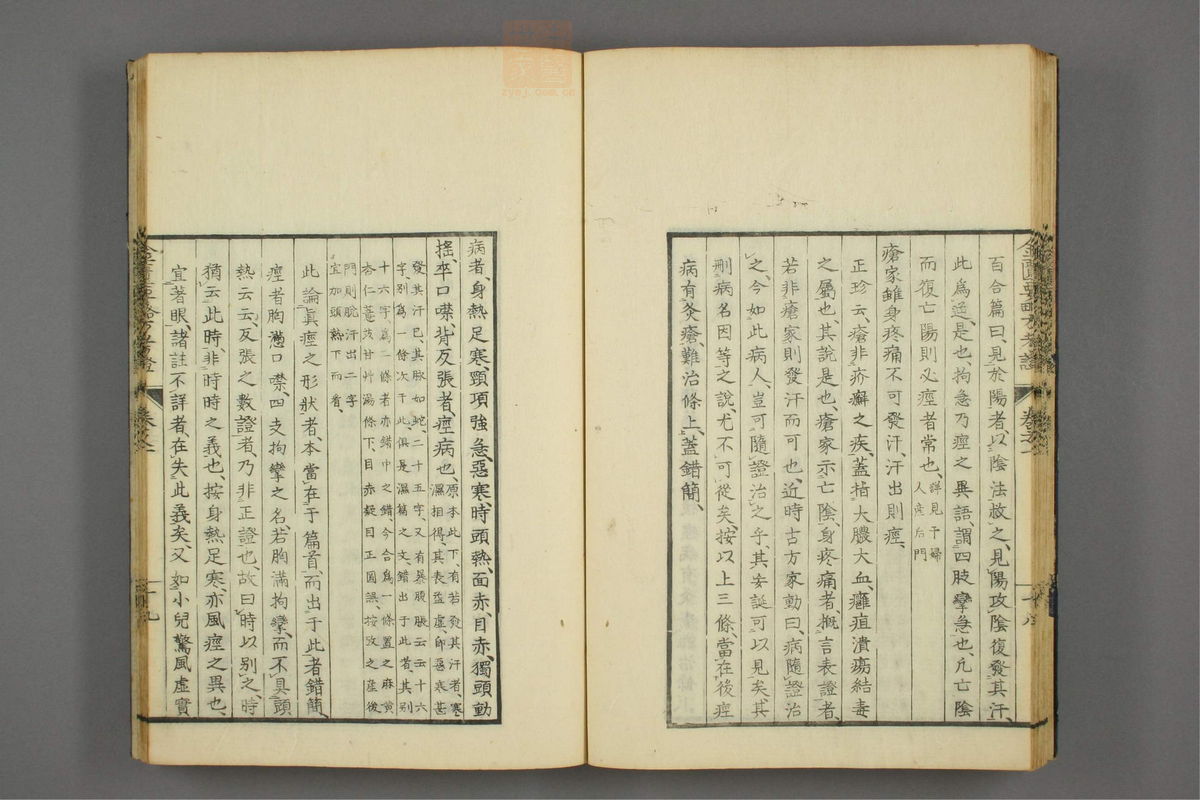 百合篇曰、見於陽者、以陰法救之、見陽攻陰、復發其汗、
此爲逆、是也、拘急乃痙之異語、謂四肢攣急也、凡亡陰
而復亡陽則必痙者常也、詳見于婦
人産后門
瘡家雖身疼痛不可發汗、汗出則痙、
正珍云、瘡非疥癬之疾、蓋指大膿大血、癰疽潰瘍結毒
之屬也、其說是也、瘡家示亡陰、身疼痛者、概言表證者、
若非瘡家則發汗而可也、近時古方家動曰、病隨證治
之、今如此病人、豈可隨證治之乎、其妄誕可以見矣、其
刪病名因等之說、尤不可從矣、按以上三條、當在後痙
病有灸瘡、難治條上、蓋錯簡、
病者、身熱足寒、頸項強急、惡寒、時頭熱、面赤、目赤、獨頭動
搖、卒口噤、背反張者、痙病也、原本此下、有若發其汗者、寒
濕相得、其表益虛、卽惡寒甚
發其汗已、其脉如蛇、二十五字、又有暴腹脹云云十六
字、別爲一條、次于此、俱是濕篇之文、錯出于此者、其別
十六字爲二條者、亦錯中之錯、今合爲一條、置之麻黄
杏仁薏苡甘艸湯條下、目赤疑目正圓誤、按攷之産後
門則脫汗出二字
宜加頭熱下而看、
此論眞痙之形狀者、本當在于篇首、而出于此者錯簡、
痙者胸滿口噤、四支拘攣之名、若胸滿拘攣、而不具頭
熱云云、反張之數證者、乃非正證也、故曰時以別之、時
猶云此時、非時時之義也、按身熱足寒、亦風痙之異也、
宜著眼、諸註不詳者、在失此義矣、又如小兒驚風虛實